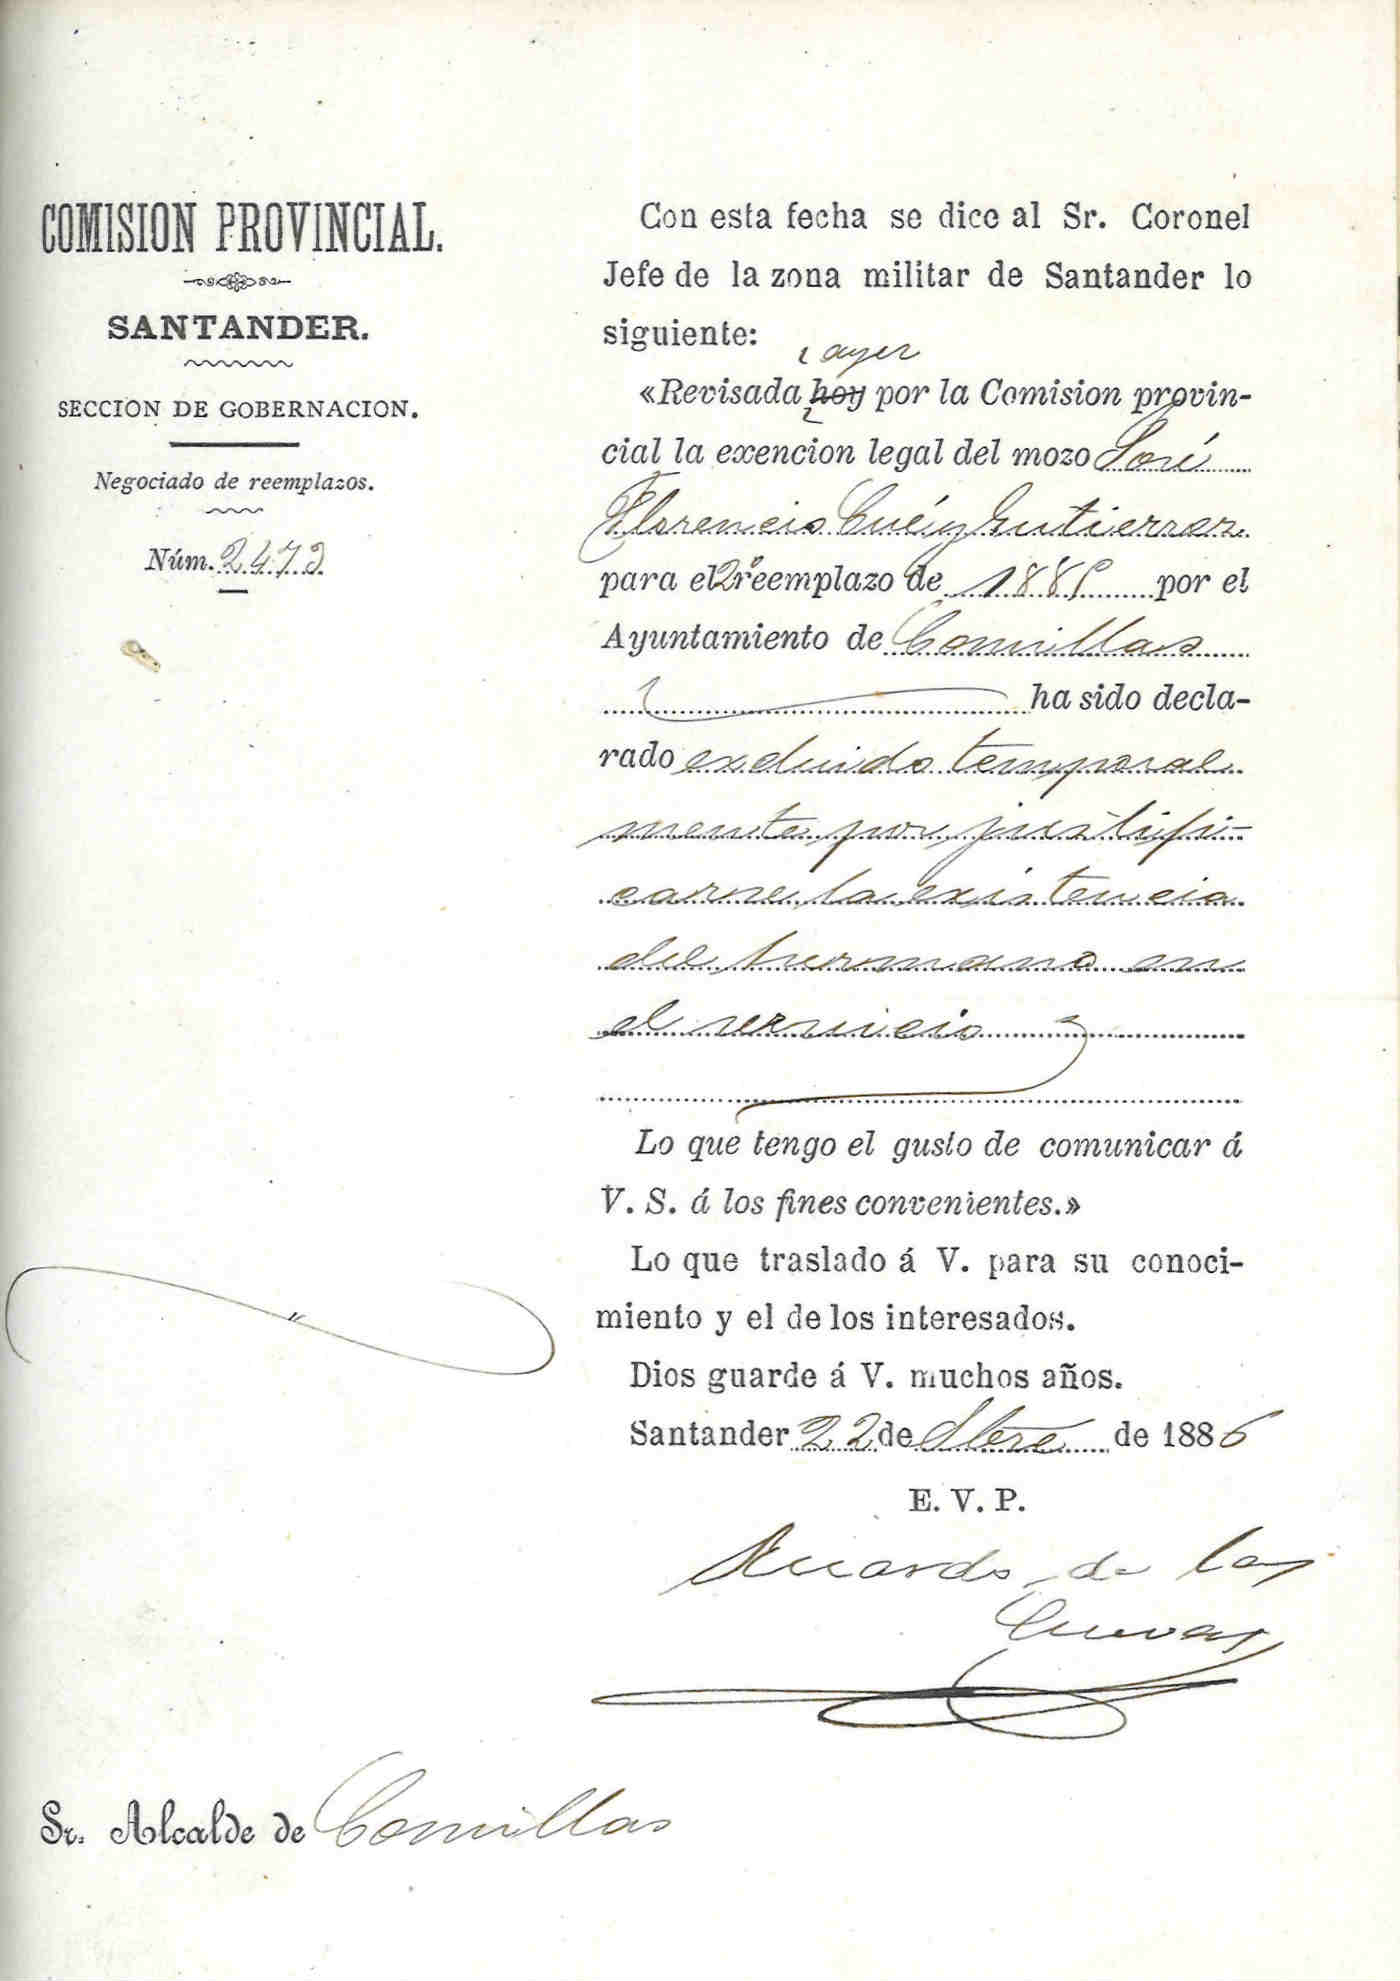 COMISION PROVINCIAL.
SANTANDER.
SECCION DE GOBERNACION.
Negociado de reemplazos.
Núm. 2473
Con esta fecha se dice al Sr. Coronel
Jefe de la zona militar de Santander lo
siguiente:
ayer
«Revisada hoy por la Comision provin-
cial la exencion legal del mozo José
Florencio Cué y Gutierrez
para el 2º reemplazo de 1885 por el
Ayuntamiento de Comillas
ha sido decla-
rado excluido temporal
mente por justifi-
carse la existencia
del hermano en
el servicio
Lo que tengo el gusto de comunicar á
V. S. á los fines convenientes.»
Lo que traslado á V. para su conoci-
miento y el de los interesados.
Dios guarde á V. muchos años.
Santander 22 de de 1886
E. V. P.
Ricardo de las
Cuevas
Sr. Alcalde de Comillas